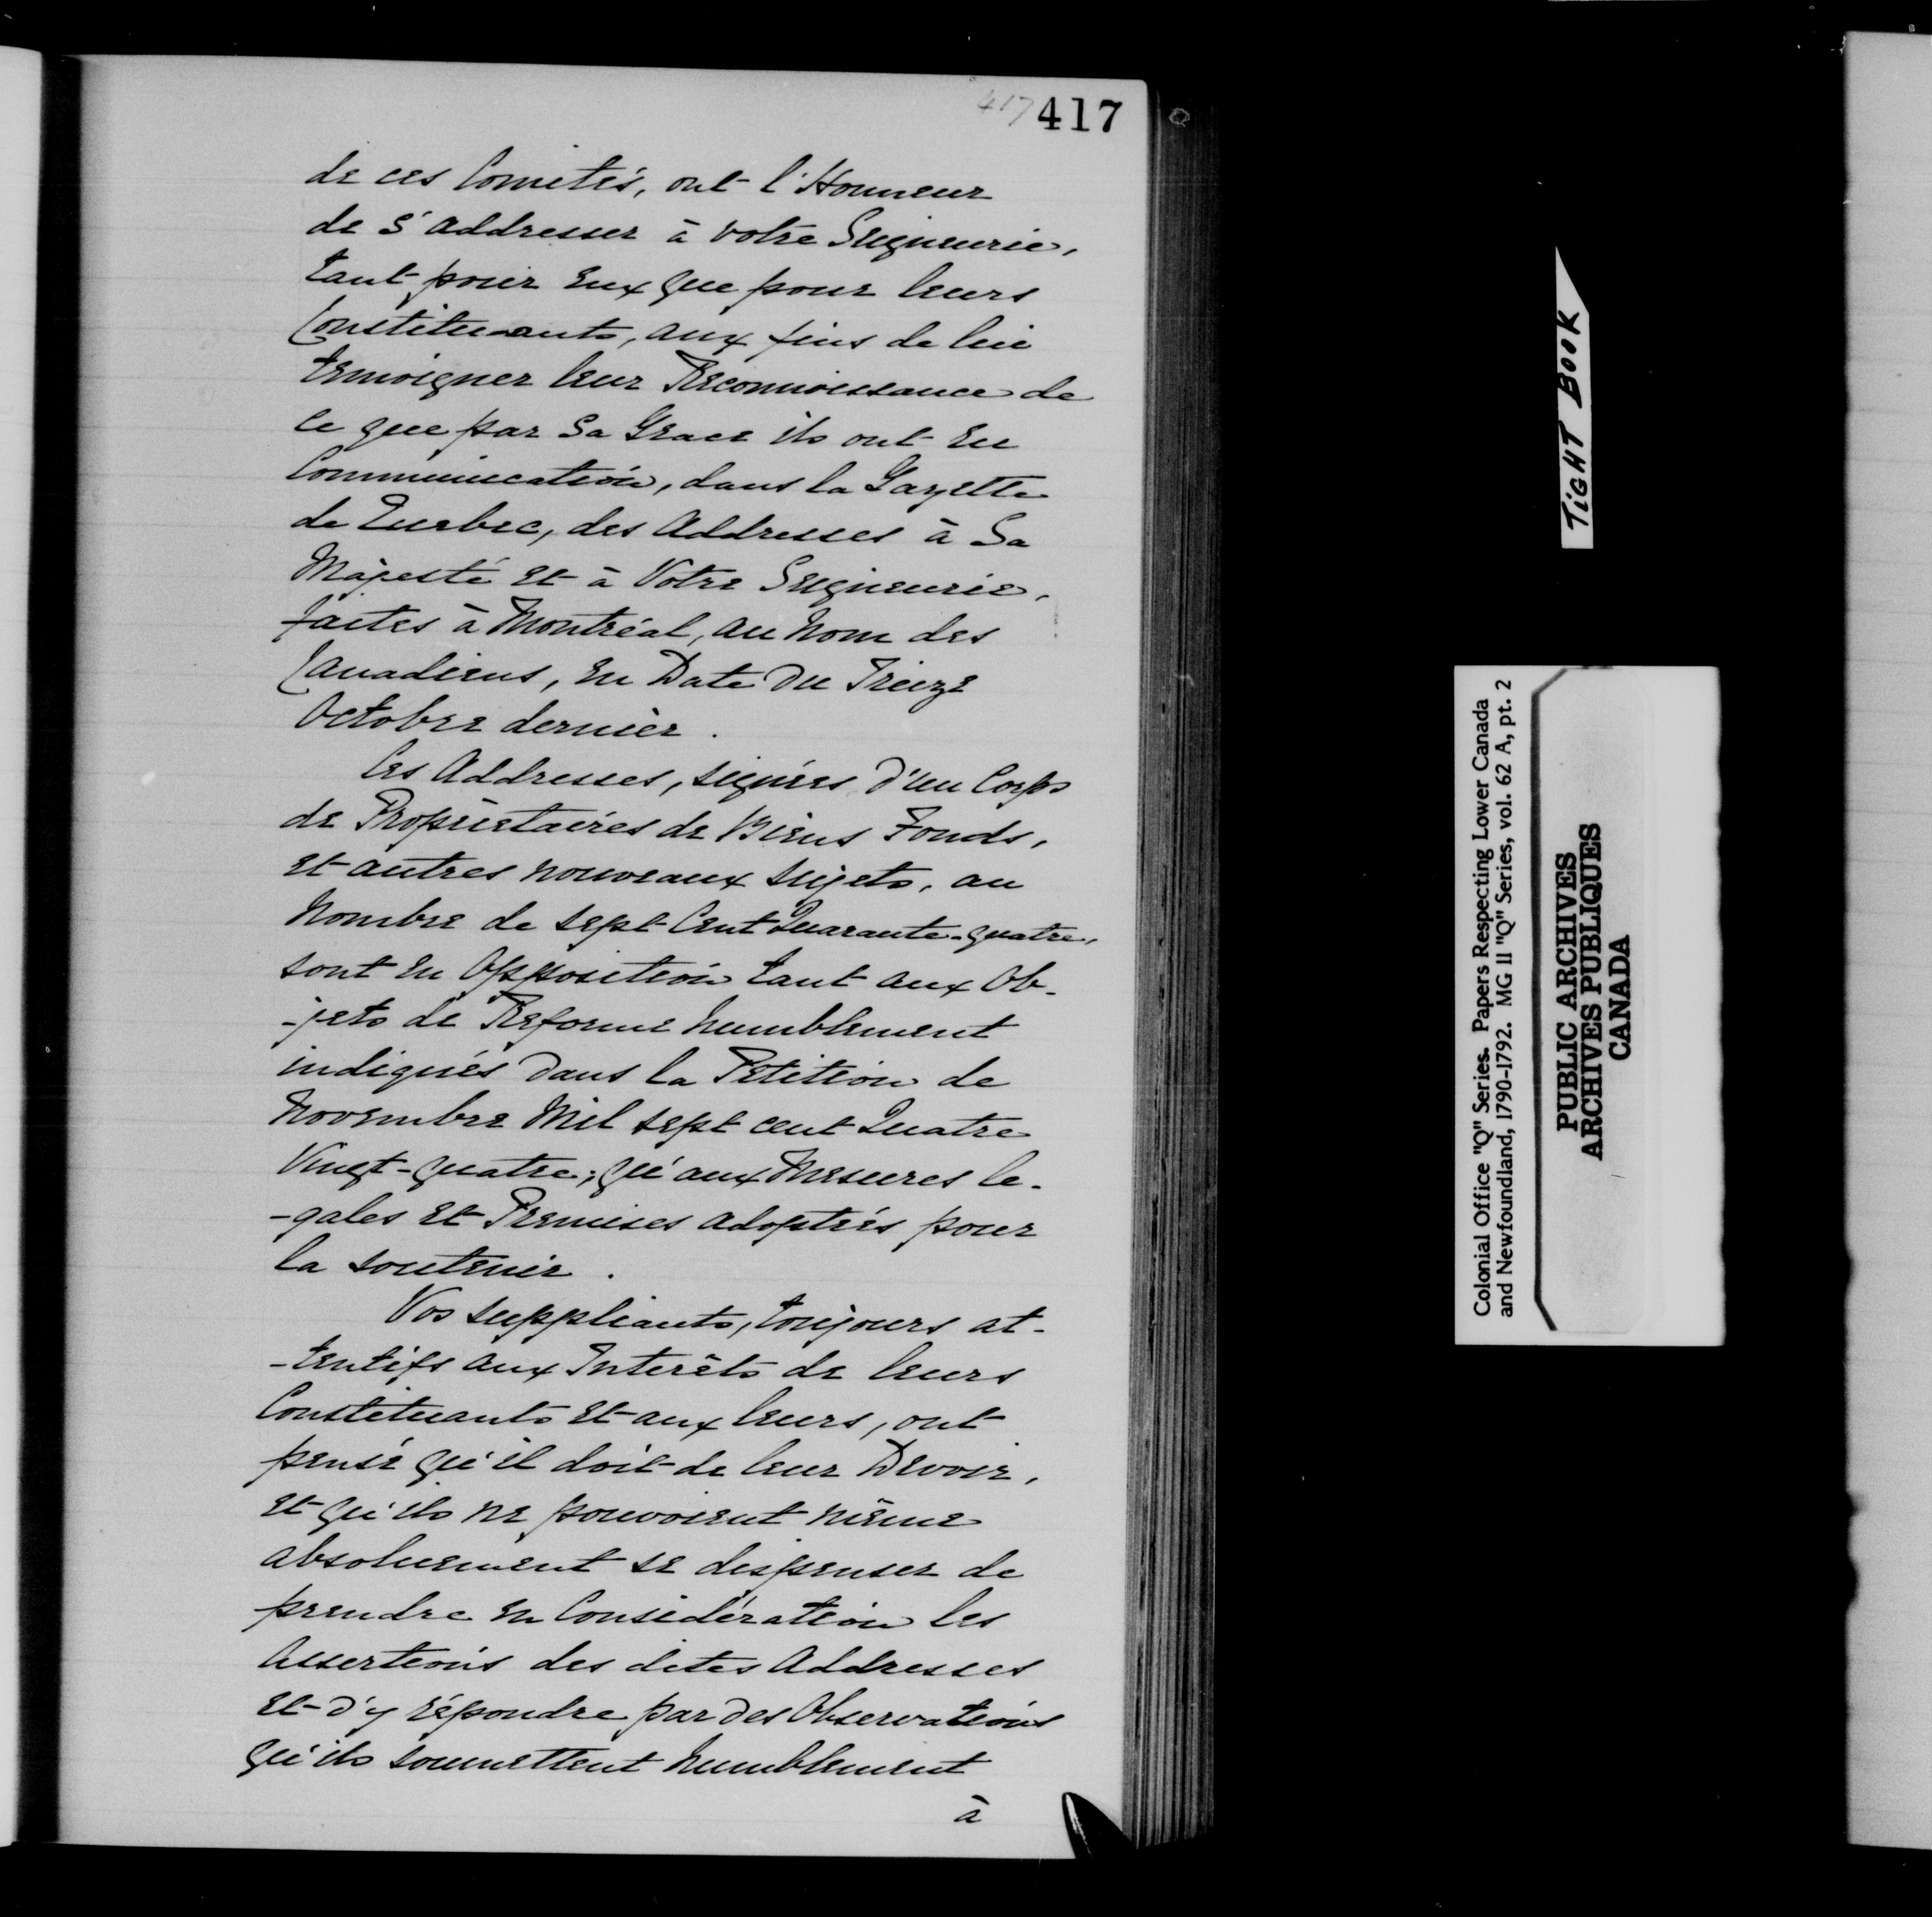 417 417
de ces Comités, ont l'Honneur
de s'addresser à votre Seigneurie,
tant pour eux que pour leurs
Constituants, aux fins de lui
temoigner leur Reconnoissance de
ce que par Sa Grace ils ont eu
Communication, dans la Gazette
de Quebec, des Addresses à Sa
Majesté et à Votre Seigneurie,
faites à Montréal, au Nom des
Canadiens, en Date du Treize
Octobre dernier.
Ces Addresses, signées d'un Corps
de Propriétaires de Biens Fonds,
et autres nouveaux sujets, au
Nombre de sept Cent Quarante-quatre,
sont en Opposition tant aux Ob-
-jets de Reforme humblement
indiqués dans la Petition de
Novembre Mil sept cent Quatre
Vingt-quatre; qu'aux Mesures le-
-gales et Premises adoptées pour
la soutenir.
Vos suppliants, toujours at-
-tentifs aux Interêts de leurs
Constituants et aux leurs, ont
pensé qu'il doit de leur Devoir,
et qu'ils ne pouvoient même
absoluement se dispenser de
prendre en Considération les
Assertions des dites Addresses
et d'y répondre par des Observations
qu'ils soumettent humblement
à
TIGHT BOOK
Colonial Office "Q" Series. Papers Respecting Lower Canada
and Newfoundland, 1790-1792. MG 11 "Q" Series, vol. 62 A, pt. 2
PUBLIC ARCHIVES
ARCHIVES PUBLIQUES
CANADA